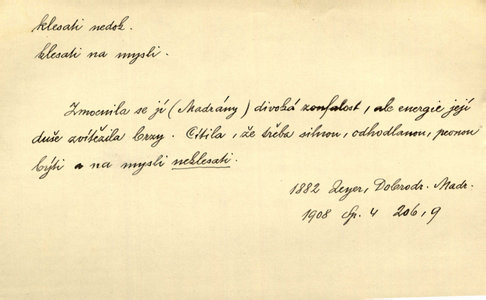 klesati nedok.
klesati na mysli.
Zmocnila se jí (Madrány) divoká zoufalost, ale energie její
duše zvítězila brzy. Cítila, že třeba silnou, odhodlanou, pevnou
býti a na mysli neklesati.
1882 Zeyer, Dobrodr. Madr.
1908 Sp. 4 206,9